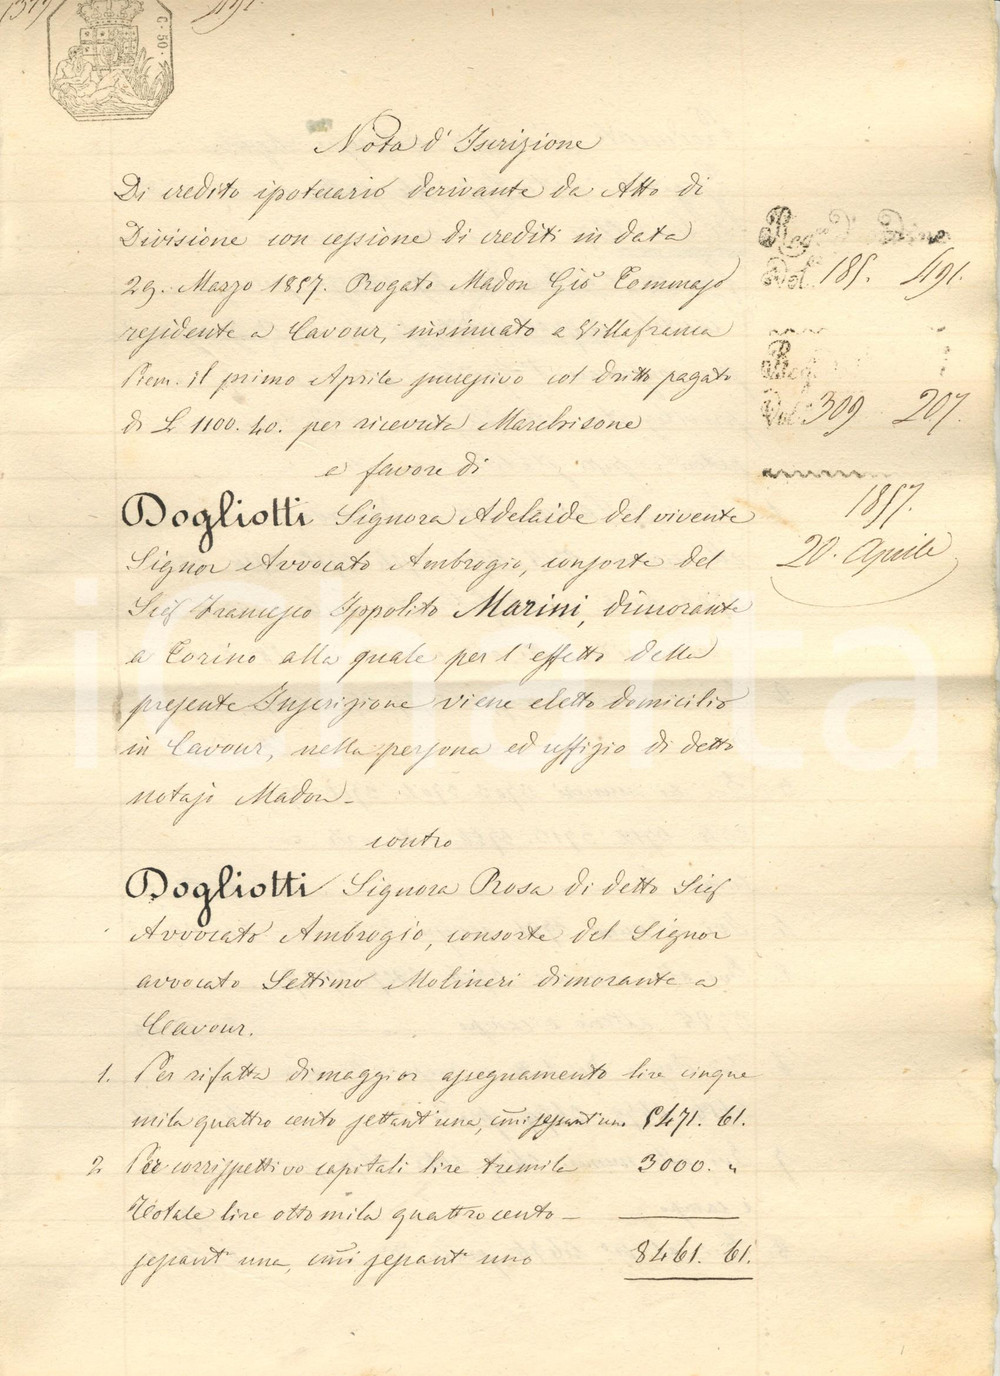 491.
C. 50.
Nota d' Iscrizione
Di credito ipotecario derivante da Atto di
Divisione con cessione di crediti in data
29. Marzo 1857. Rogato Madon Gio Tommaso
residente a Cavour, insinuato a Villafranca
Piem. il primo Aprile successivo col dritto pagato
di L 1100. 40. per ricevuta Marchisone
a favore di
Dogliotti Signora Adelaide del vivente
Signor Avvocato Ambrogio, consorte del
Sig Francesco Ippolito Marini, dimorante
a Torino alla quale per l'effetto della
presente Inscrizione viene eletto domicilio
in Cavour, nella persona ed uffizio di detto
notajo Madon -
contro
Dogliotti Signora Rosa di detto Sig
Avvocato Ambrogio, consorte del Signor
avvocato Settimo Molineri dimorante a
Cavour.
1. Per rifatta di maggior assegnamento lire cinque
mila quattro cento settant'una, cmi sessant'uno 5471. 61.
2 Per corrispettivo capitali lire tremila 3000. "
Totale lire otto mila quattrocento -
sessant' una, cmi sessant' uno 8461. 61.
Vol. 185. 491.
Vol. 309 207.
1857.
20. Aprile